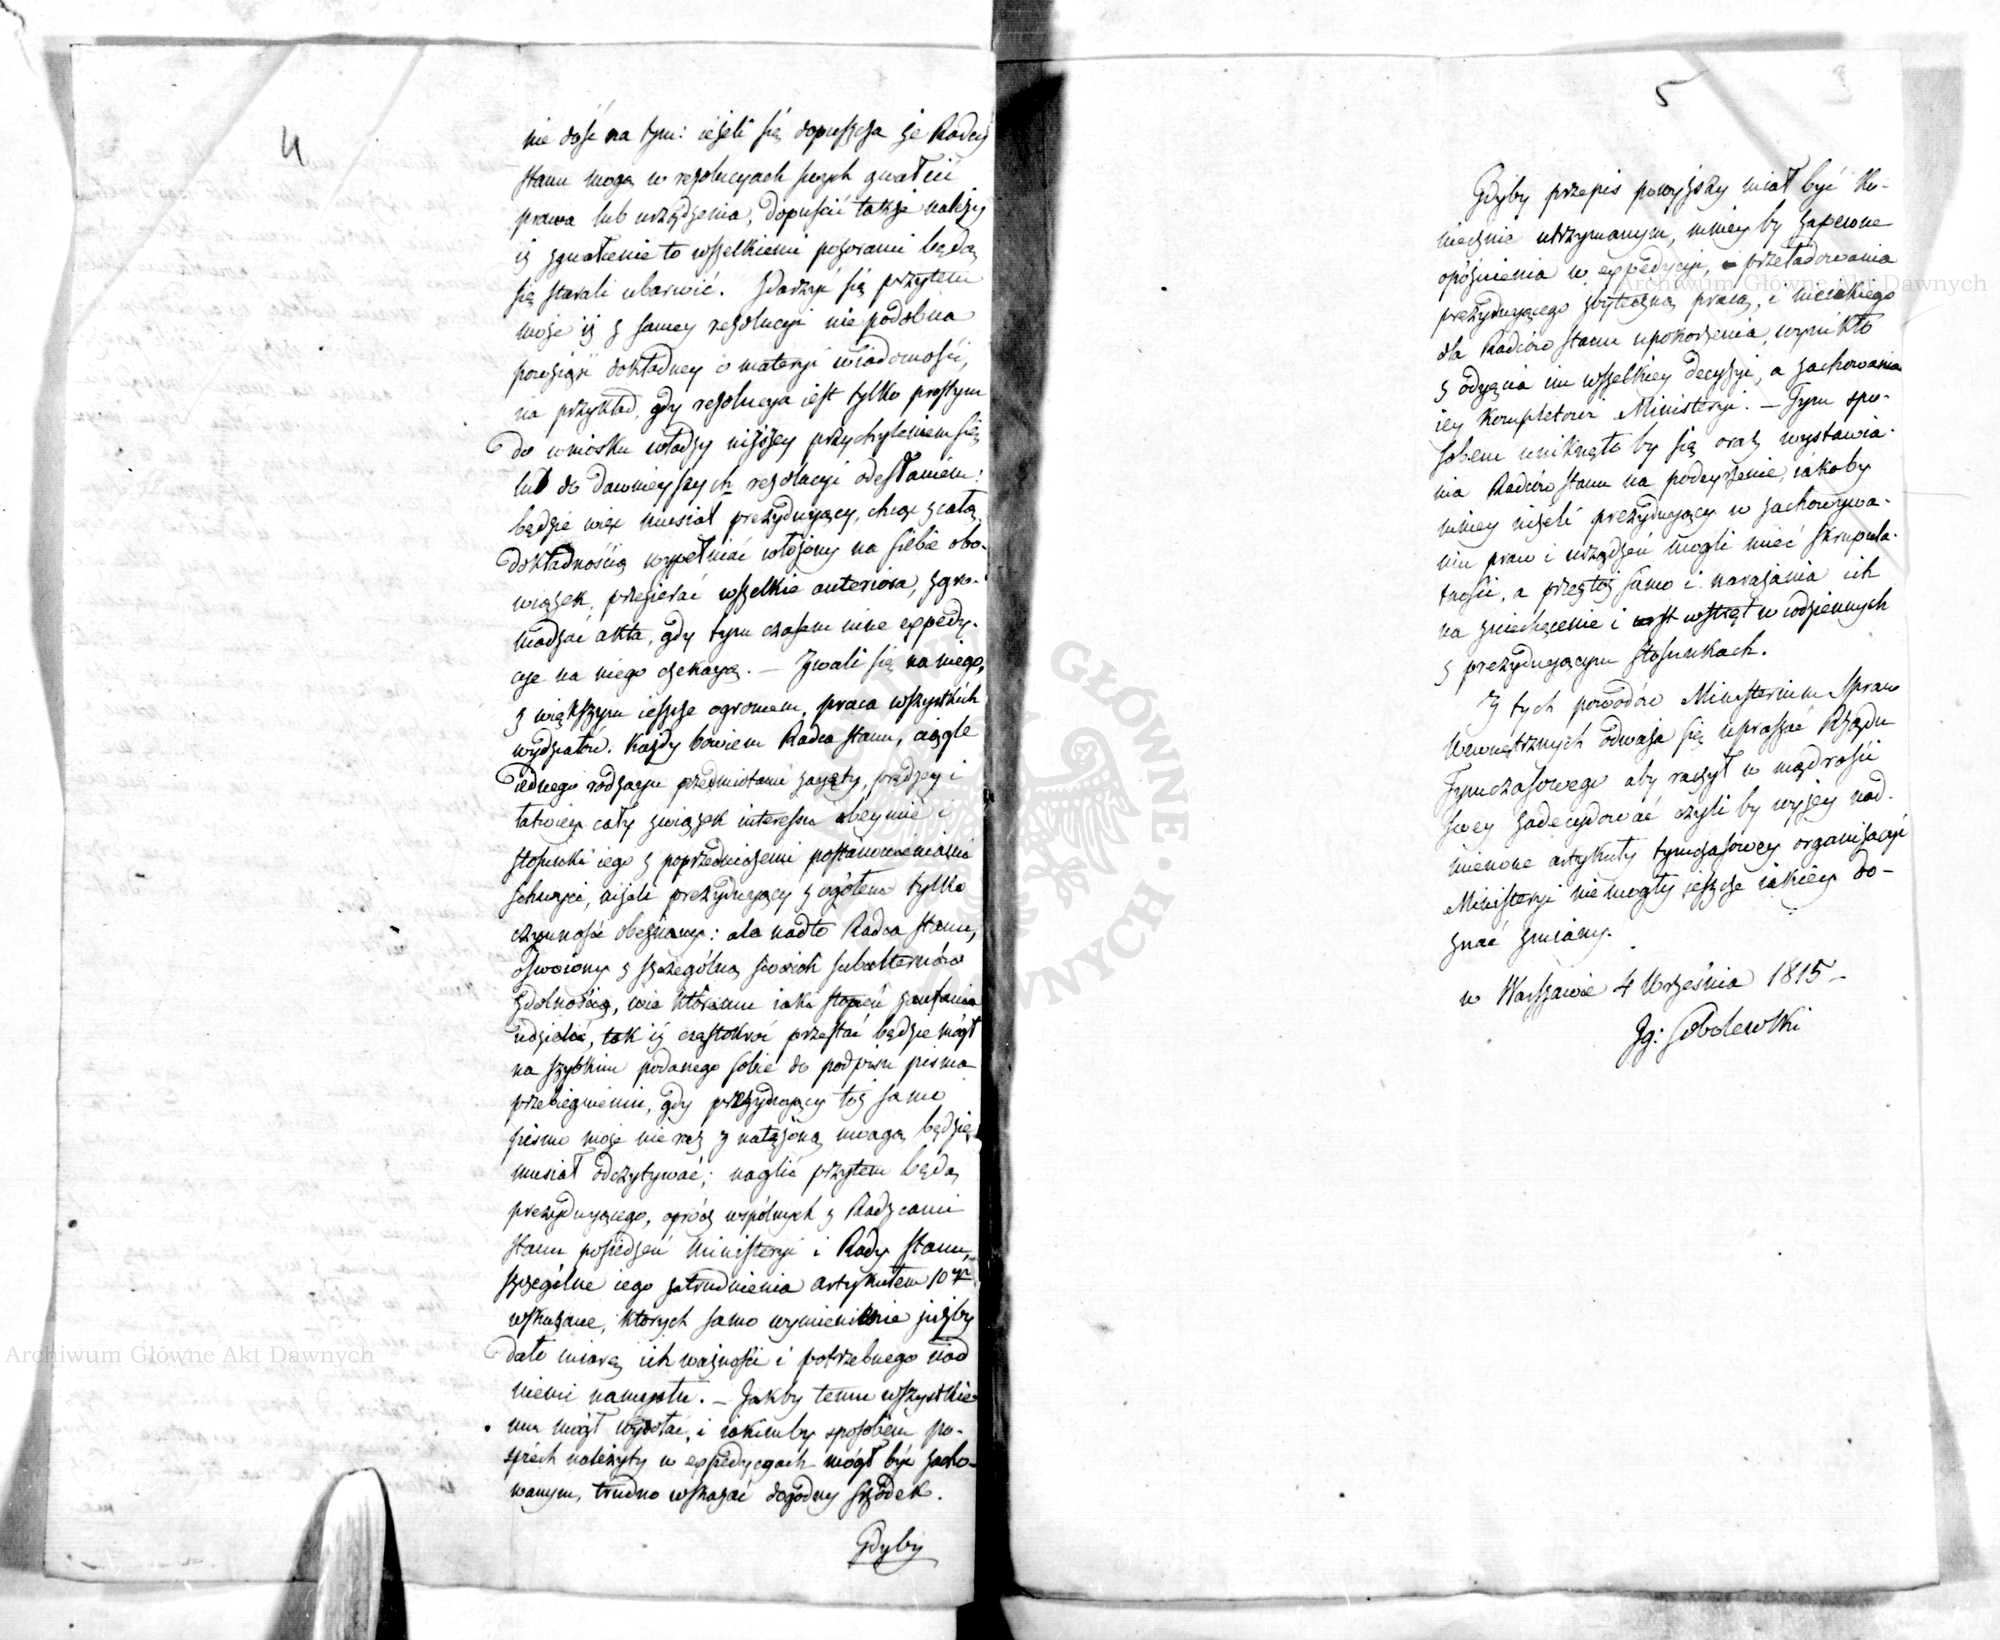 4
nie dość na tym: ieżeli się dopuszcza że Radcy
stanu mogą w rezolucyach swych gwałcić
prawa lub urządzenia, dopuścić także należy
iż zgwałcenie to wszelkiemi pozorami będą
się starali ubarwić. Zdarzyć się przytem
może iż z samey rezolucyi niepodobna
powziąść dokładney o materyi wiadomości,
na przykład, gdy rezolucya iest tylko prostym
do wniosku władzy niższey przychyleniem się
lub do dawnieyszych rezolucyi odesłaniem:
będzie więc musiał prezyduiący, chcąc z całą
dokładnością wypełniać włożony na siebie obo-
wiązek, przezierać wszelkie anteriora, zgro-
madzać akta, gdy tym czasem inne expedy-
cye na niego czekaią. — Zwali się na niego,
z większym ieszcze ogromem, praca wszystkich
wydziałów. Każdy bowiem Radca stanu, ciągle
iednego rodzaiu przedmiotami zaięty, prędzey i
łatwiey cały związek interessu obeymie i
stosunki iego z poprzedniczemi postanowieniami
schwyci, niżeli prezyduiący z ogółem tylko
czynności obeznany: ale nadto Radca stanu,
oswoiony z szczególną swoich subalternów
zdolnością, wie któremu iaki stopień zaufania
udzielić, tak iż częstokroć przestać będzie mógł
na szybkim podanego sobie do podpisu pisma
przebiegnieniu, gdy prezyduiący toż samo
pismo może nie raz z natężoną uwagą będzie
musiał odczytywać; naglić przytem będą
prezyduiącego, oprócz wspólnych z Radzcami
stanu posiedzeń Ministeryi i Rady stanu,
szczególne iego zatrudnienia artykułem 10ym
wskazane, których samo wymienienie iużby
dało miarę ich ważności i potrzebnego nad
niemi namysłu. — Jakby temu wszystkie-
mu mógł wydołać, i iakimby sposobem po-
śpiech należyty w expedycyach mógł być zacho-
wanym, trudno wskazać dogodny śrzodek.
Gdyby
5
Gdyby przepis powyższy miał być ko-
niecznie utrzymanym, mniey by zapewne
opóźnienia w expedycyi, przeładowania
prezyduiącego zbyteczną pracą, i nieiakiego
dla Radców stanu upokorzenia, wynikło
z odjęcia im wszelkiey decyzyi, a zachowania
iey kompletowi Ministeryi. — Tym spo-
sobem uniknęło by się oraz wystawia-
nia Radców stanu na podeyrzenie, iakoby
mniey niżeli prezyduiący w zachowywa-
niu praw i urządzeń mogli mieć skrupula-
tności, a przez toż samo i narażania ich
na zniechęcenie i wstręt w codziennych
z prezyduiącym stosunkach.
Z tych powodów Ministerium Spraw
Wewnętrznych odważa się upraszać Rządu
Tymczasowego aby raczył w mądrości
swey zadecydować czyli by wyżey nad-
mienione artykuły tymczasowey organizacyi
Ministeryi nie mogły ieszcze iakiey do-
znać zmiany.
w Warszawie 4 Września 1815 —
Ig: Sobolewski
Archiwum Główne Akt Dawnych
Archiwum Główne Akt Dawnych